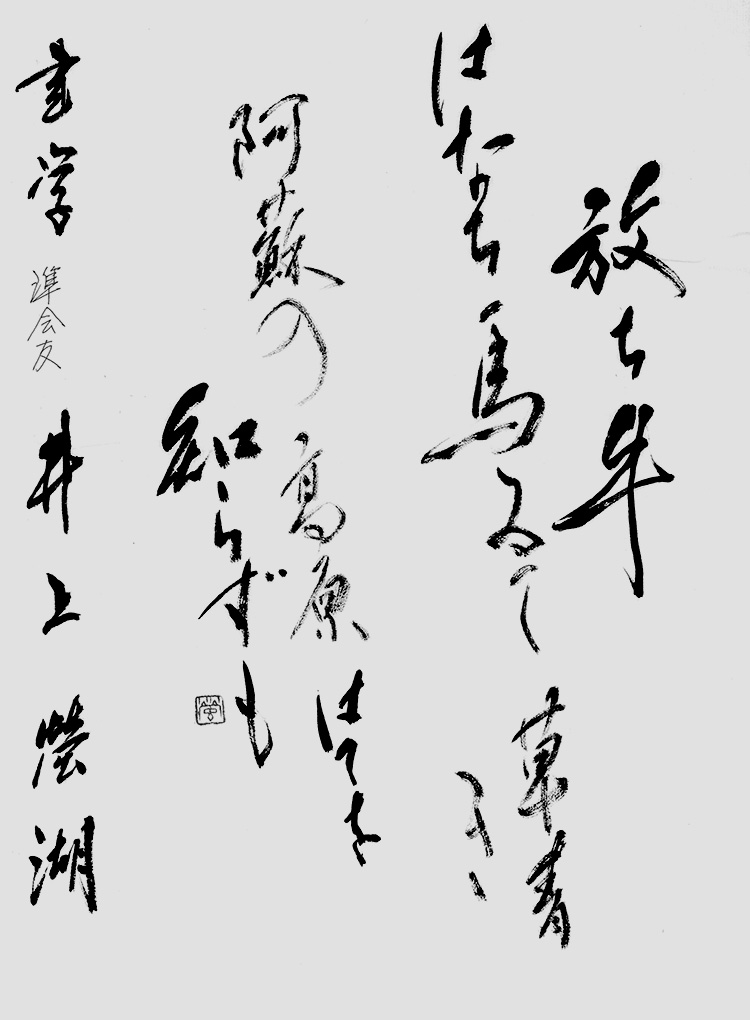 放ち牛
はなち馬ゐて草青
き
阿蘇の高原はてを
知らずも
書学 準会友 井上螢湖